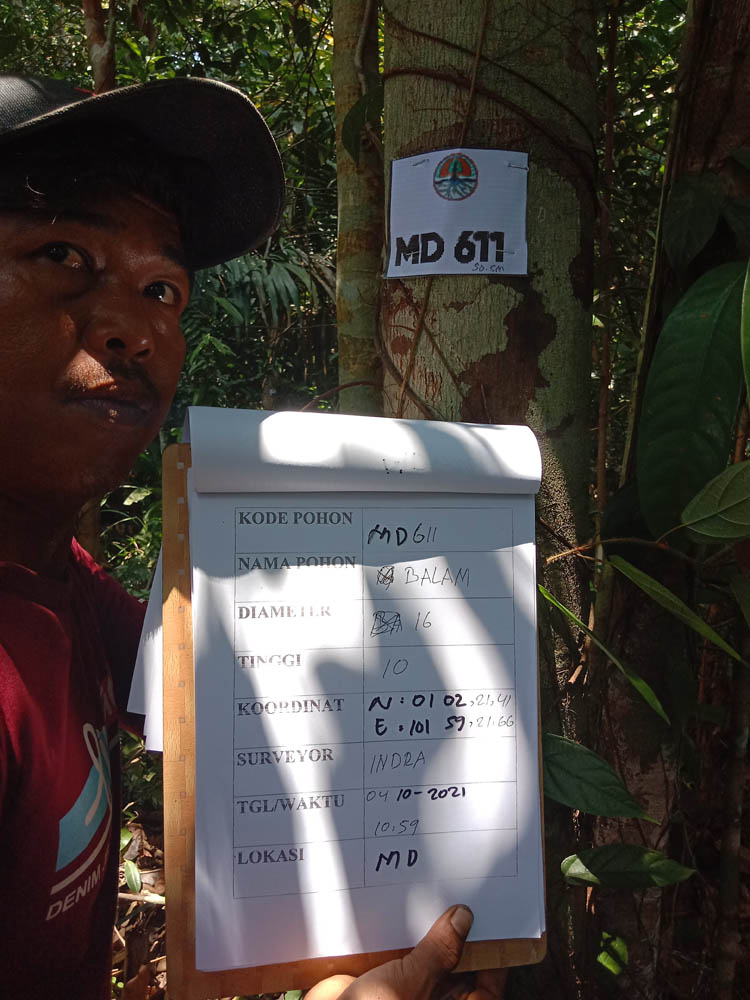 MD 611
50.cm
KODE POHON MD611
NAMA POHON BALAM
DIAMETER 16
TINGGI 10
KOORDINAT N : 01 02, 21,41
E : 101 59, 21.66
SURVEYOR INDRA
TGL/WAKTU 04 10-2021
10:59
LOKASI MD
DENIM